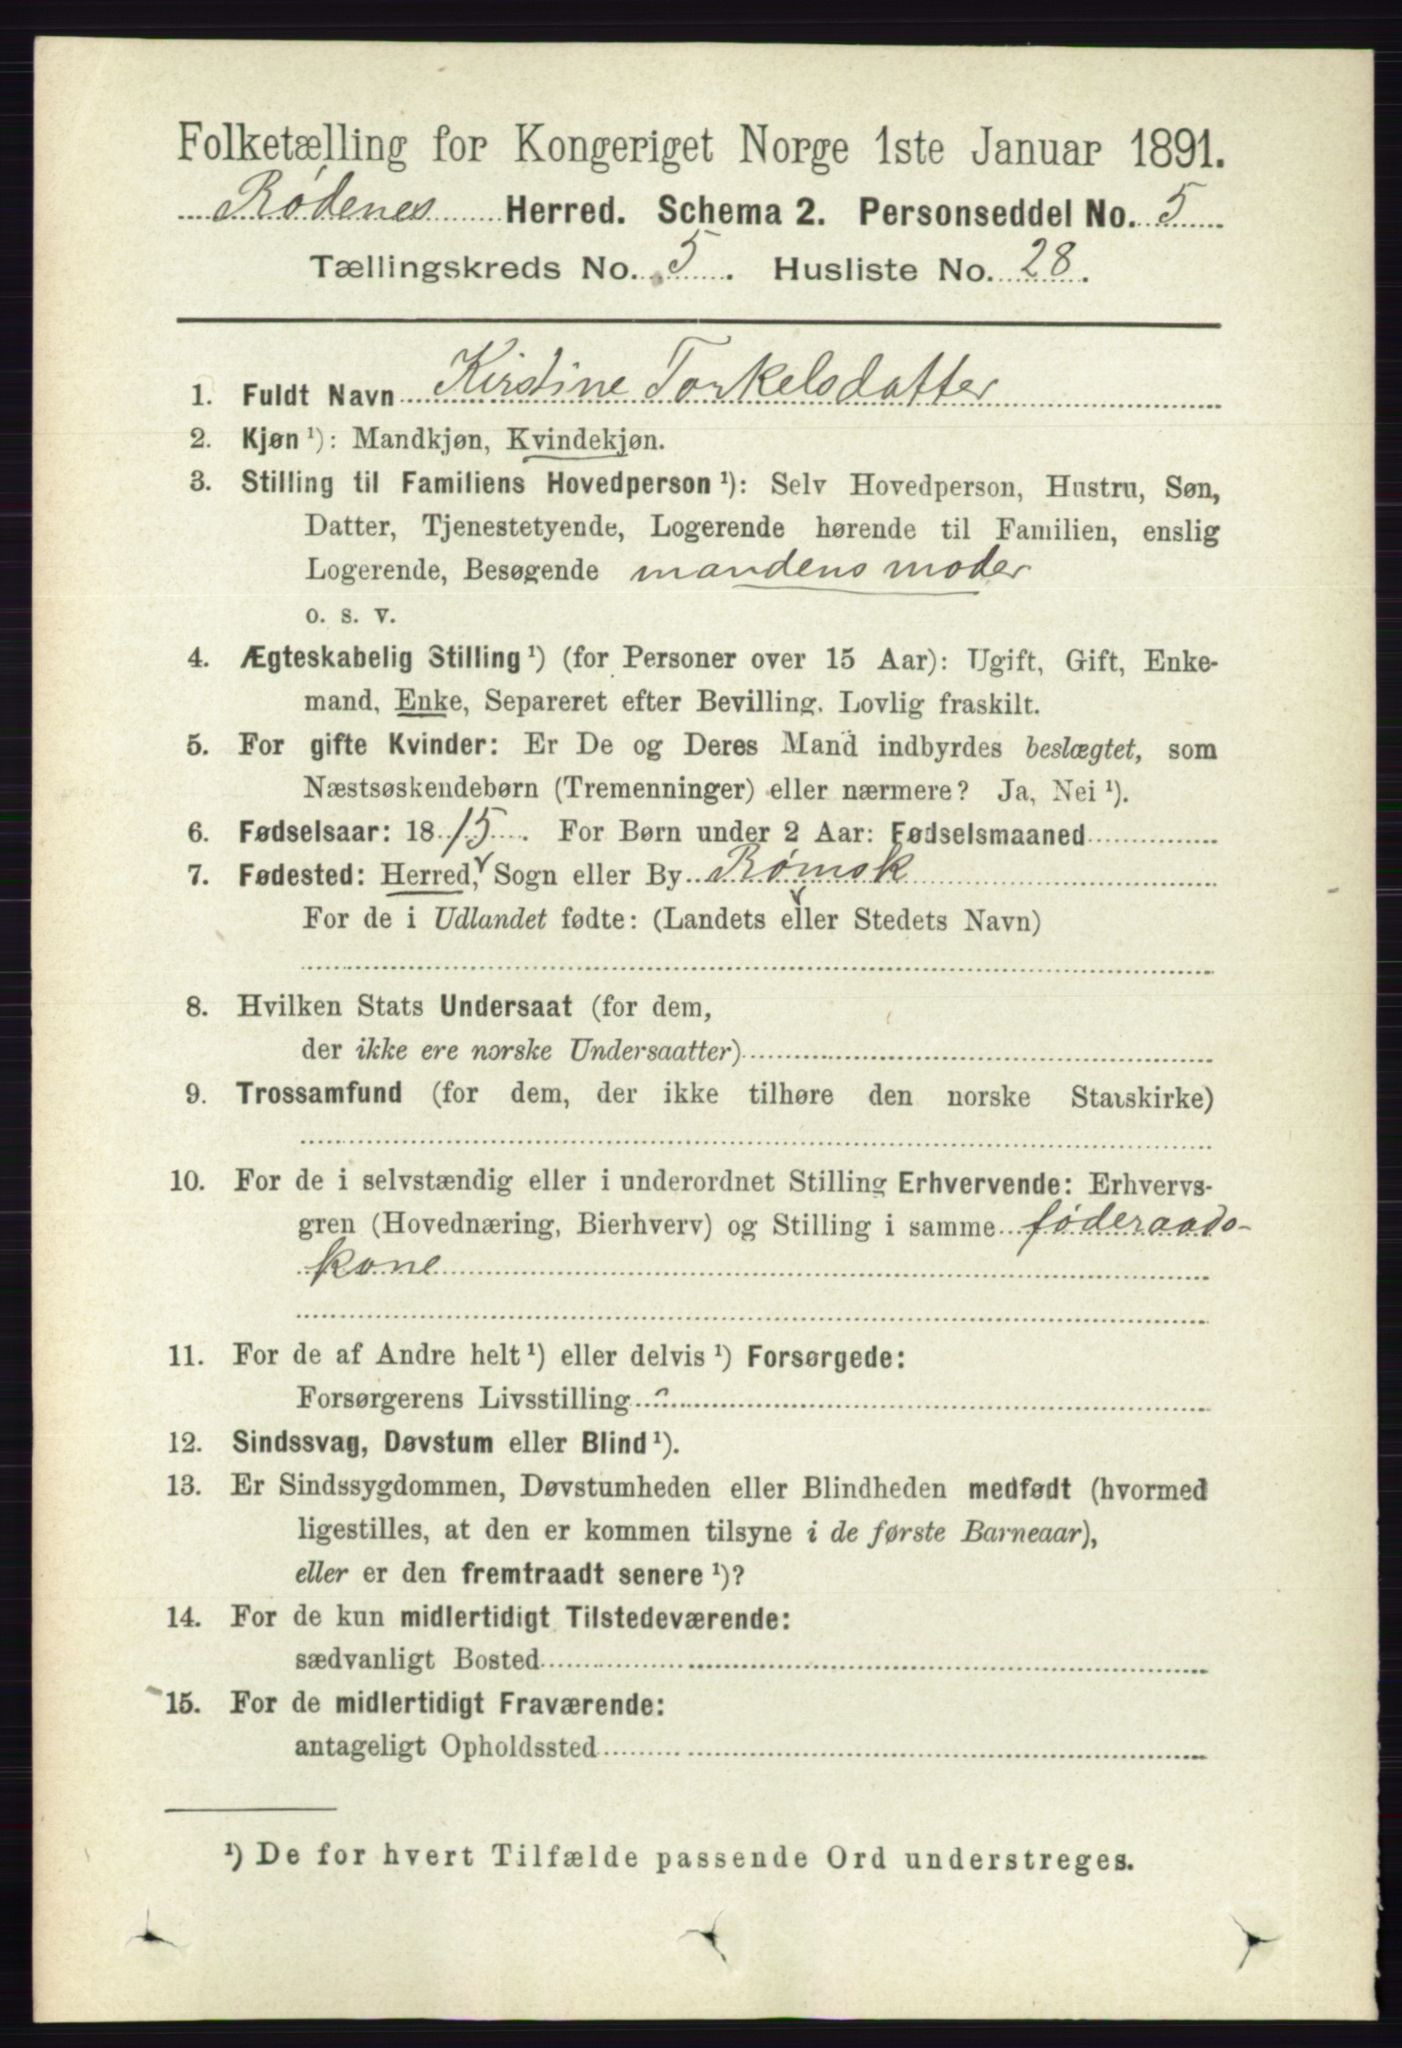 Folketælling for Kongeriget Norge 1ste Januar 1891.
Rødenes Herred. Schema 2. Personseddel No. 5
Tællingskreds No. 5. Husliste No. 28.
1. Fuldt Navn Kirstine Torkelsdatter
2. Kjøn ¹): Mandkjøn, Kvindekjøn.
3. Stilling til Familiens Hovedperson ¹): Selv Hovedperson, Hustru, Søn,
Datter, Tjenestetyende, Logerende hørende til Familien, enslig
Logerende, Besøgende mandens moder
o. s. v.
4. Ægteskabelig Stilling ¹) (for Personer over 15 Aar): Ugift, Gift, Enke-
mand, Enke, Separeret efter Bevilling. Lovlig fraskilt.
5. For gifte Kvinder: Er De og Deres Mand indbyrdes beslægtet, som
Næstsøskendebørn (Tremenninger) eller nærmere? Ja, Nei ¹).
6. Fødselsaar: 1815. For Børn under 2 Aar: Fødselsmaaned
7. Fødested: Herred, Sogn eller By Rømsk
For de i Udlandet fødte: (Landets eller Stedets Navn)
8. Hvilken Stats Undersaat (for dem,
der ikke ere norske Undersaatter)
9. Trossamfund (for dem, der ikke tilhøre den norske Statskirke)
10. For de i selvstændig eller i underordnet Stilling Erhvervende: Erhvervs-
gren (Hovednæring, Bierhverv) og Stilling i samme føderaads-
kone
11. For de af Andre helt ¹) eller delvis ¹) Forsørgede:
Forsørgerens Livsstilling
12. Sindssvag, Døvstum eller Blind ¹).
13. Er Sindssygdommen, Døvstumheden eller Blindheden medfødt (hvormed
ligestilles, at den er kommen tilsyne i de første Barneaar),
eller er den fremtraadt senere ¹)?
14. For de kun midlertidigt Tilstedeværende:
sædvanligt Bosted
15. For de midlertidigt Fraværende:
antageligt Opholdssted
¹) De for hvert Tilfælde passende Ord understreges.